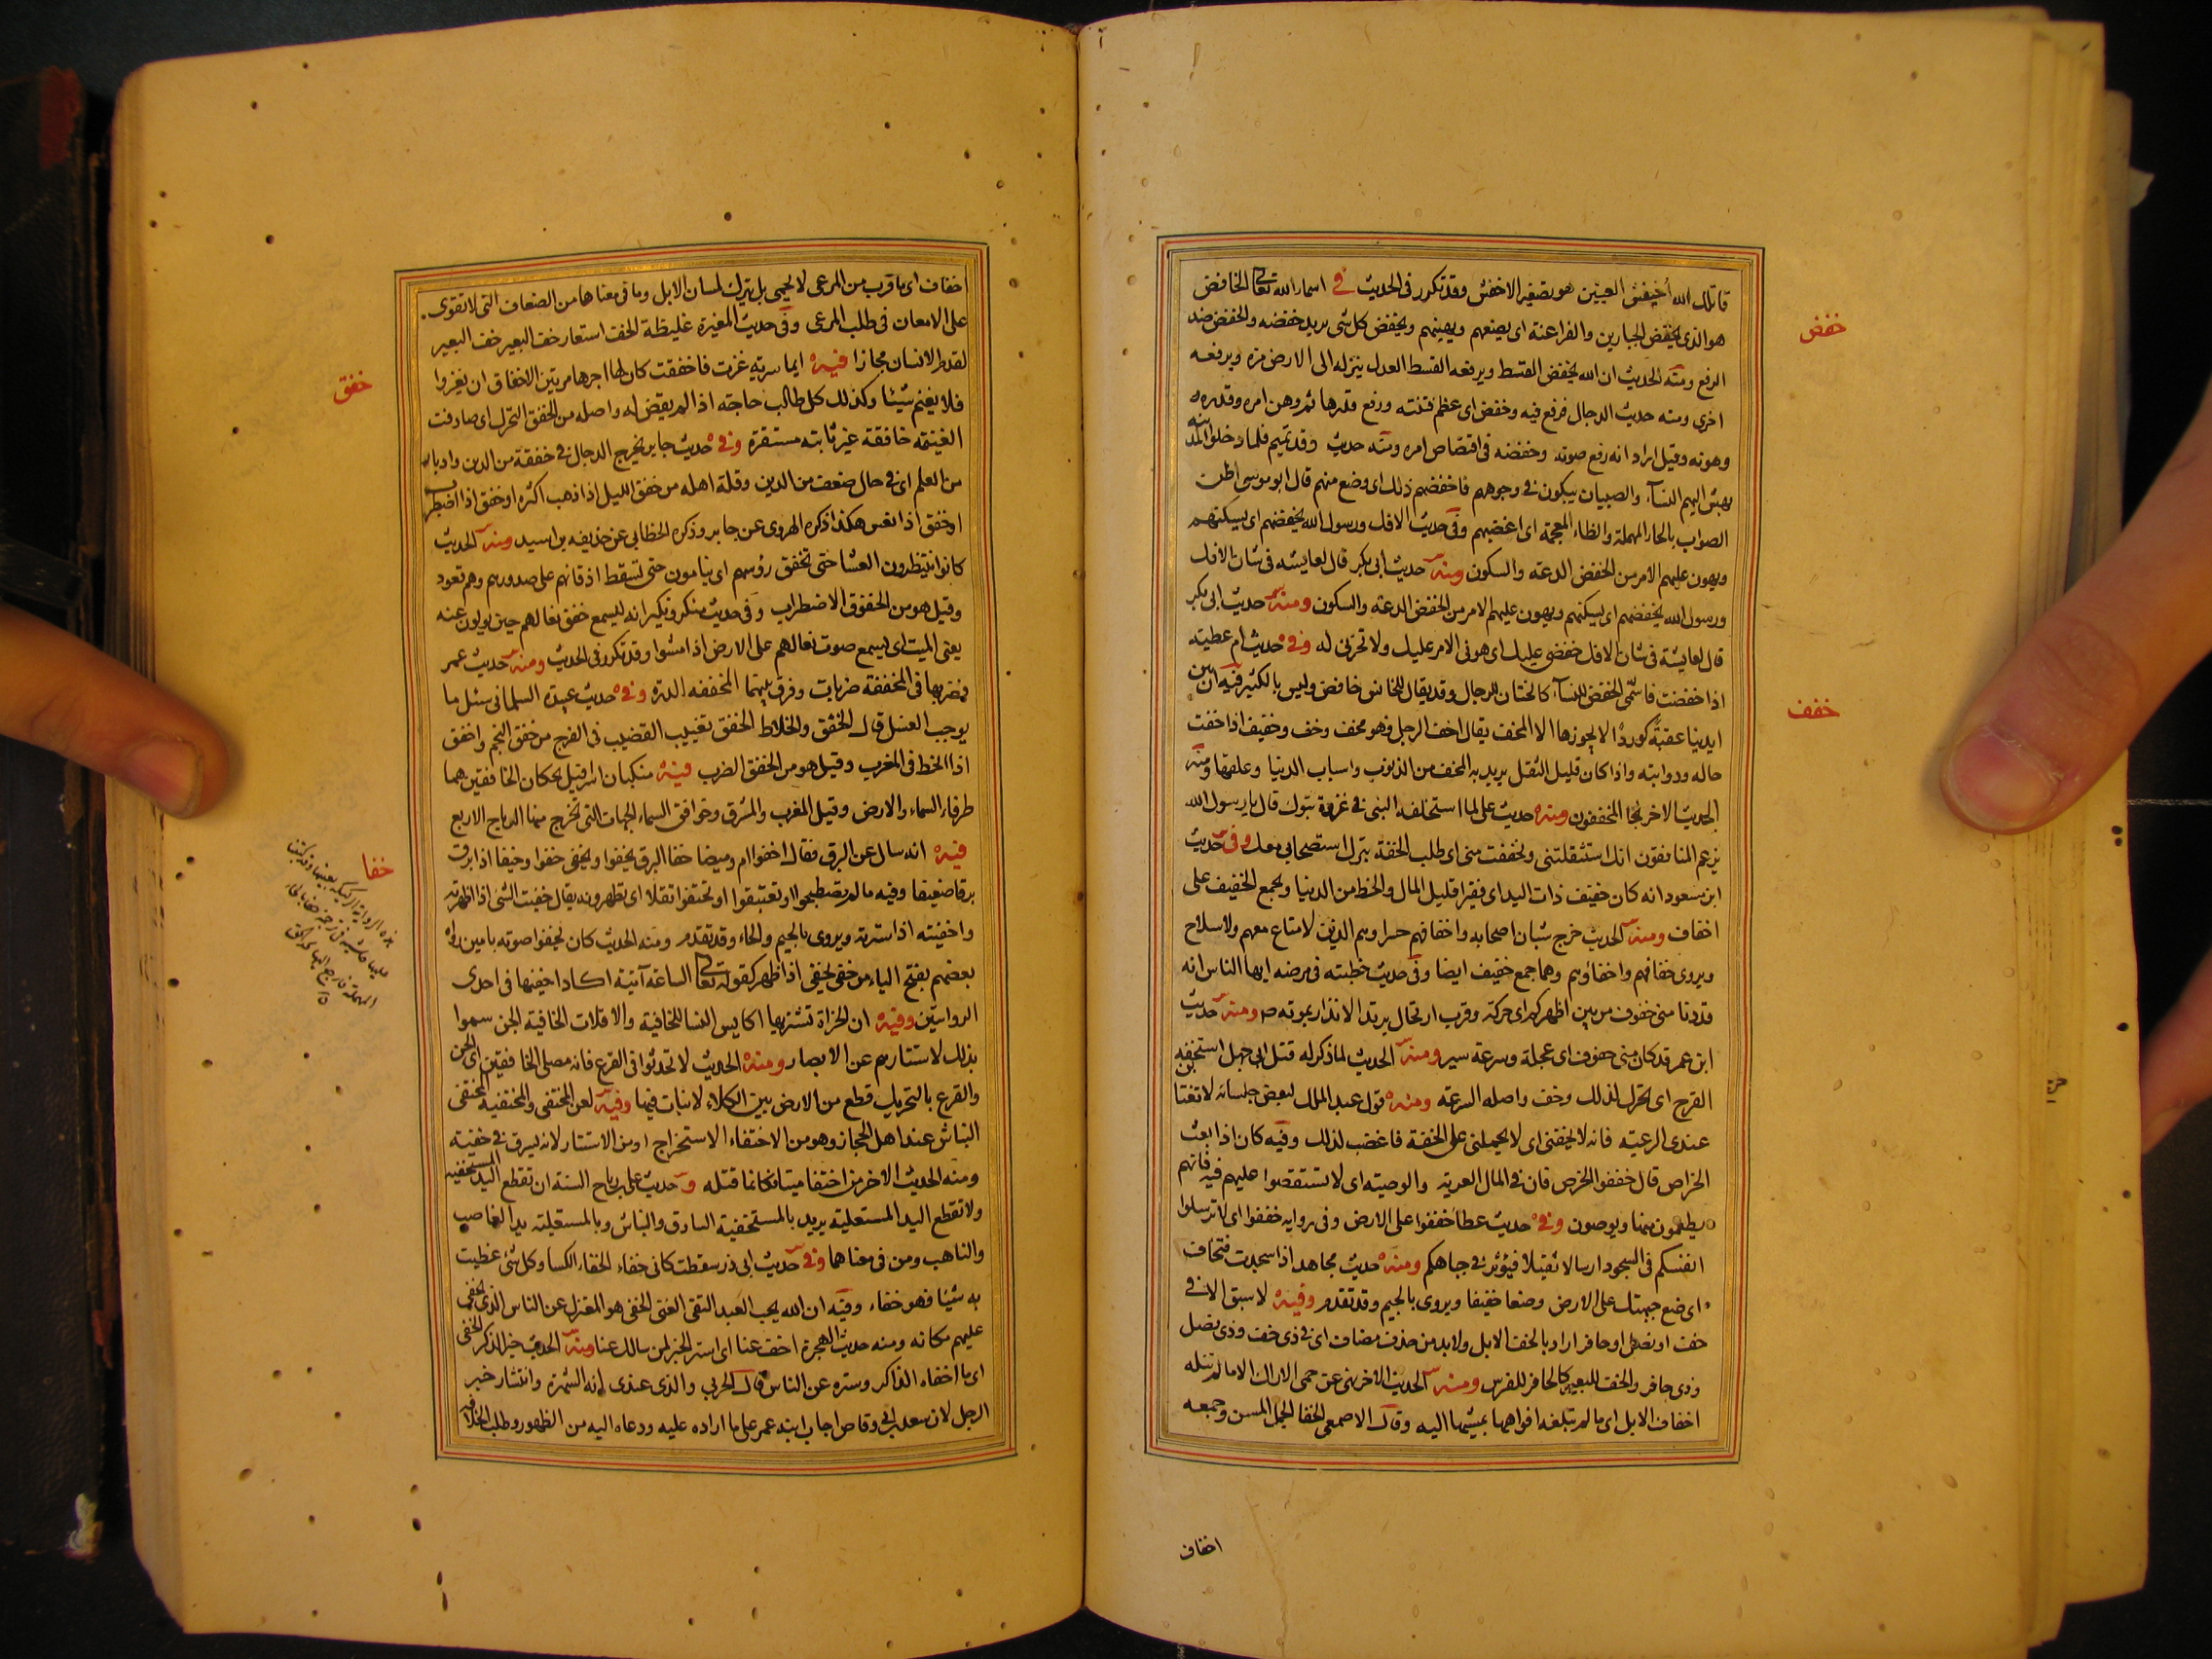 قاتلك الله أخيفش العينين هو تصغير الاخفش وقد تكرر في الحديث في اسماء الله تعالى الخافض
خفض
هو الذي يخفض الجبارين والفراعنة اى يضعهم ويهينهم ويخفض كل شى يريد خفضه والخفض ضد
الرفع ومنه الحديث ان الله يخفض القسط ويرفعه القسط العدل ينزله الى الارض مرة ويرفعه
اخرى ومنه حديث الدجال فرفع فيه وخفض اى عظم فتنته ورفع قدرها ثم وهن امره وقدره
وهونه وقيل اراد انه رفع صوته وخفضه في اقتصاص امره ومنه حديث وفد تميم فلما دخلوا المدينة
بهش اليهم النسآء والصبيان يبكون في وجوههم فاخفضهم ذلك اى وضع منهم قال ابو موسى اظن
الصواب بالحاء المهملة والظاء المعجمة اى اغضبهم وفي حديث الافك ورسول الله يخفضهم اى يسكنهم
ويهون عليهم الامر من الخفض الدعة والسكون ومنه حديث ابى بكر قال لعايشه في شان الافك
ورسول الله يخفضهم اى يسكنهم ويهون عليهم الامر من الخفض الدعة والسكون ومنه حديث ابى بكر
قال لعايشة في شان الافك خفضى عليك اى هوني الامر عليك ولا تحزني له وفي حديث ام عطية
اذا خفضت فاشمّى الخفض للنسآء كالختان للرجال وقد يقال للخاتن خافض وليس بالكثير فيه ان بين
خفف
ايدينا عقبةً كوودًا لا يجوزها الا المخف يقال اخف الرجل فهو مخف وخف وخفيف اذا خفت
حاله ودوابته واذا كان قليل الثقل يريد به المخف من الذنوب واسباب الدنيا وعلقها ومنه
الحديث الاخر نجا المخففون ومنه حديث على لما استخلفه النبى في غزوة تبوك قال يا رسول الله
يزعم المنافقون انك استثقلتنى وتخففت منى اى طلب الخفة بترك استصحابى معك وفى حديث
ابن مسعود انه كان خفيف ذات اليد اى فقيرا قليل المال والحظ من الدنيا ويجمع الخفيف على
اخفاف ومنه الحديث خرج شبان اصحابه واخفافهم حسرا وهم الذين لا متاع معهم ولا سلاح
ويروى خفافهم واخفاؤهم وهما جمع خفيف ايضا وفي حديث خطبته في مرضه ايها الناس انه
قد دنا منى خفوف من بين اظهركم اى حركة وقرب ارتحال يريد الانذار بموته ومنه حديث
ابن عمر قد كان منى خفوف اى عجلة وسرعة سير ومنه الحديث لما ذكر له قتل ابى جهل استخفه
الفرح اى تحرك لذلك وخف واصله السرعة ومنه قول عبد الملك لبعض جلسائه لا تغتابن
عندى الرعية فانه لا يخفنى اى لا يحملنى على الخفة فاغضب لذلك وفيه كان اذا بعث
الخراص قال خففوا الخرص فان في المال العرية والوصية اى لا تستقصوا عليهم فيه فانهم
يطعمون منها ويوصون وفي حديث عطا خففوا على الارض وفي روايه خففوا اى لا ترسلوا
انفسكم في السجود ارسالا ثقيلا فيؤثر في جباهكم ومنه حديث مجاهد اذا سجدت فتخاف
اى ضع جبهتك على الارض وضعا خفيفا ويروى بالجيم وقد تقدم وفيه لا سبق الا في
خف او نصل او حافر اراد بالخف الابل ولابد من حذف مضاف اى في ذى خف وذى نصل
وذى حافر والخف للبعير كالحافر للفرس ومنه الحديث الاخر نهى عن حمى الاراك الا ما لم تنله
اخفاف الابل اى ما لم تبلغه افواهها بمشيها اليه وقال الاصمعى الخف الجمل المسن وجمعه
اخفاف
اخفاف اى ما قرب من المرعى لا يحمى بل يترك لمسان الابل وما في معناها من الضعاف التى لا تقوى
على الامعان في طلب المرعى وفي حديث المغيرة غليظة الخف استعار خف البعير خف البعير
لقدم الانسان مجازا فيه ايما سرية غزت فاخفقت كان لها اجرها مرتين الاخفاق ان يغزوا
خفق
فلا يغنم شيئا وكذلك كل طالب حاجة اذا لم يقض له واصله من الخفق التحرك اى صادفت
الغنيمة خافقة غير ثابتة مستقرة وفي حديث جابر يخرج الدجال في خفقة من الدين وادبار
من العلم اى في حال ضعف من الدين وقلة اهله من خفق الليل اذا ذهب اكثره او خفق اذا اضطرب
او خفق اذا نعس هكذا ذكره الهروى عن جابر وذكره الخطابى عن حذيفه بن اسيد ومنه الحديث
كانوا ينتظرون العشا حتى تخفق رؤسهم اى ينامون حتى تسقط اذقانهم على صدورهم وهم قعود
وقيل هو من الخفوق الاضطراب وفي حديث منكر ونكير انه ليسمع خفق نعالهم حين يولون عنه
يعنى الميت اى يسمع صوت نعالهم على الارض اذا مشوا وقد تكرر في الحديث ومنه حديث عمر
فضربها في المخفقة ضربات وفرق بينهما المخفقه الدره وفي حديث عبيدة السلمانى سئل ما
يوجب الغسل قال الخفق والخلاط الخفق تغييب القضيب في الفرج من خفق النجم واخفق
اذا انحط في المغرب وقيل هو من الخفق الضرب فيه منكبان اسرافيل يحكان الخافقين هما
طرفاء السماء والارض وقيل المغرب والمشرق وخوافق السماء الجهات التى تخرج منها الرياح الاربع
فيه انه سال عن البرق فقال اخفوا ام وميضا خفا البرق يخفوا ويخفى خفوا وخفيا اذا برق
خفا
برقا ضعيفا وفيه ما لم تصطبحوا او تغتبقوا او تختفوا بقلا اى تظهرونه يقال خفيت الشى اذا اظهرته
واخفيته اذا سترته ويروى بالجيم والحاء وقد تقدم ومنه الحديث كان يخفوا صوته بامين رواه
بعضهم بفتح الياء من خفى يخفى اذا ظهر كقوله تعالى ان الساعة آتية اكاد اخفيها في احدى
الروايتين وفيه ان الحزاة تشتريها اكايس النسا للخافية والاقلات الخافية الجن سموا
بذلك لاستتارهم عن الابصار ومنه الحديث لا تحدثوا في القرع فانه مصلى الخافقين اى الجن
والقرع بالتحريك قطع من الارض بين الكلاء لا نبات فيها وفيه لعن المختفى والمختفيه المختفى
النباش عند اهل الحجاز وهو من الاختفاء الاستخراج او من الاستتار لانه يسرق في خفية
ومنه الحديث الاخر من اختفا ميتا فكانما قتله و حديث على بن رباح السنة ان تقطع اليد المستخفيه
ولا تقطع اليد المستعلية يريد بالمستخفية السارق والنباش وبالمستعلية يد الغاصب
والناهب ومن في معناهما وفي حديث ابى ذر سقطت كانى خفاء الخفاء الكسا وكل شئ غطيت
به شيئا فهو خفاء وفيه ان الله يحب العبد التقى الغنى الخفى هو المعتزل عن الناس الذى يخفى
عليهم مكانه ومنه حديث الهجرة اخف عنا اى استر الخبر لمن سالك عنا ومنه الحديث خير الذكر الخفى
اى ما اخفاه الذاكر وستره عن الناس قال الحربى والذى عندى انه الشهرة وانتشار خبر
الرجل لان سعد بن ابى وقاص اجاب ابنه عمر على ما اراده عليه ودعاه اليه من الظهور وطلب الخلافة